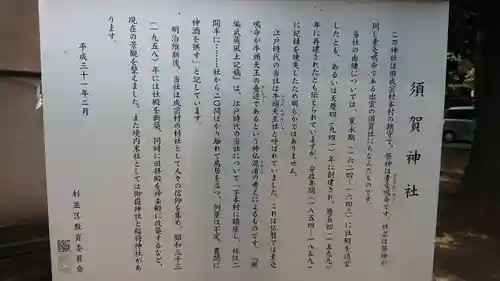 須賀神社
この神社は旧成宗村本村の鎮守で、祭神は素戔嗚命です。社名は祭神が
同じ素戔嗚命である出雲の須賀社にちなんだものです。
当社の由緒については、寛永期（一六二四―一六四三）に社殿を造営
したとも、あるいは天慶四（九四一）年に創建され、慶長四（一五九九）
年に再建されたとも伝えられていますが、安政年間（一八五四―一八五九）
に記録を焼失したため明らかではありません。
江戸時代の当社は牛頭天王社と呼ばれていました。これは仏教では素戔
嗚命が牛頭天王の垂迹であるという神仏混淆の考えによるもので、『新
編武蔵風土記稿』は、江戸時代の当社について「字本村に鎮座し、社は二
間半に……社から二〇間ばかり離れて鳥居を立つ、例祭は不定、夏間に
神酒を供す」と記しています。
明治維新後、当社は成宗村の村社として人々の信仰を集め、昭和三十三
（一九五八）年には社殿を新築、同時に旧拝殿を神楽殿に改築するなど、
現在の景観を整えました。また境内末社としては御嶽神社と稲荷神社があ
ります。
平成三十一年二月
杉並区教育委員会